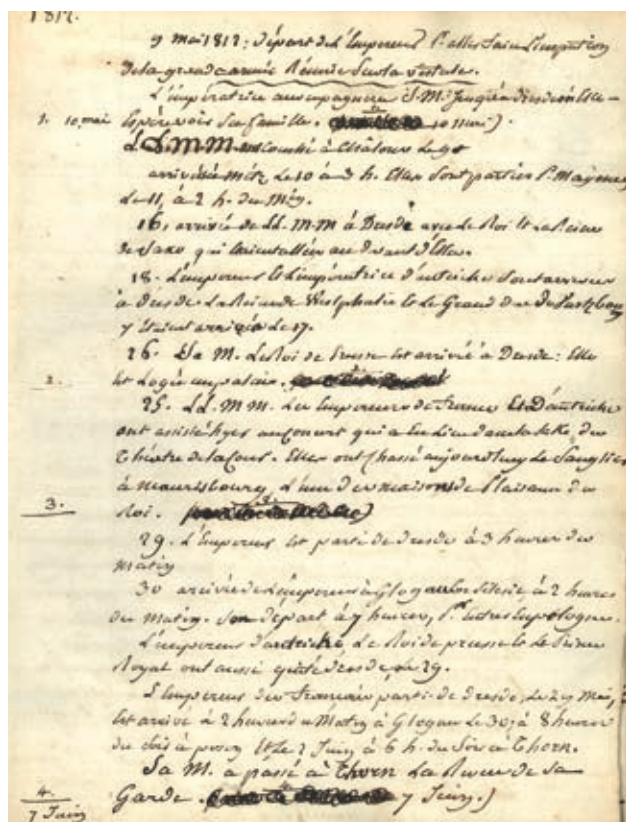 1812.
9 mai 1812: Départ de l'Empereur pr. aller faire l'inspection
de la grande armée Réunie sur la vistule.
L'impératrice accompagnera S. M. jusqu'à Dresde où Elle
Espère voir sa famille. 10 mai)
1. 10 mai
LL. MM. ont couché à Châlons le 9
arrivées à Metz, le 10 à 3 h. Elles sont parties pr. Mayence
Le 11, à 2 h. du M.
16, arrivée de LL. M M à Dresde avec le Roi et la Reine
de Saxe qui étaient allés au devant d'Elles.
18. L'empereur et L'impératrice d'autriche sont arrivés
à Dresde. La Reine de Westphalie et le Grand Duc de
y étaient arrivés le 17.
26. Sa M. Le Roi de Prusse est arrivée à Dresde: Elle
2.
Est Logée au palais.
25. LL. M M. Les Empereurs de France et D'autriche
ont assisté hyer au Concert qui a eu Lieu dans la salle du
Théâtre de la Cour. Elles ont Chassé aujourd'huy Le Sanglier
à mauritsbourg, L'une des maisons de Plaisance du
3.
Roi.
29. L'Empereur est parti de Dresde à 3 heures du
matin
30 arrivée de L'empereur à Glogau en Silésie, à 2 heures
du matin. Son départ à 7 heures, pr.
L'empereur d'autriche, Le Roi de prusse et le Prince
Royal ont aussi quitté dresde, le 29.
L'Empereur des Français parti de dresde, Le 29 Mai,
Est arrivé à 2 heures du Matin à Glogau Le 30, à 8 heures
du soir à posen Et Le 2 Juin à 6 h. du Soir à Thorn.
Sa M. a passé à Thorn La Revue de sa
4.
Garde. 7 Juin.)
7 Juin